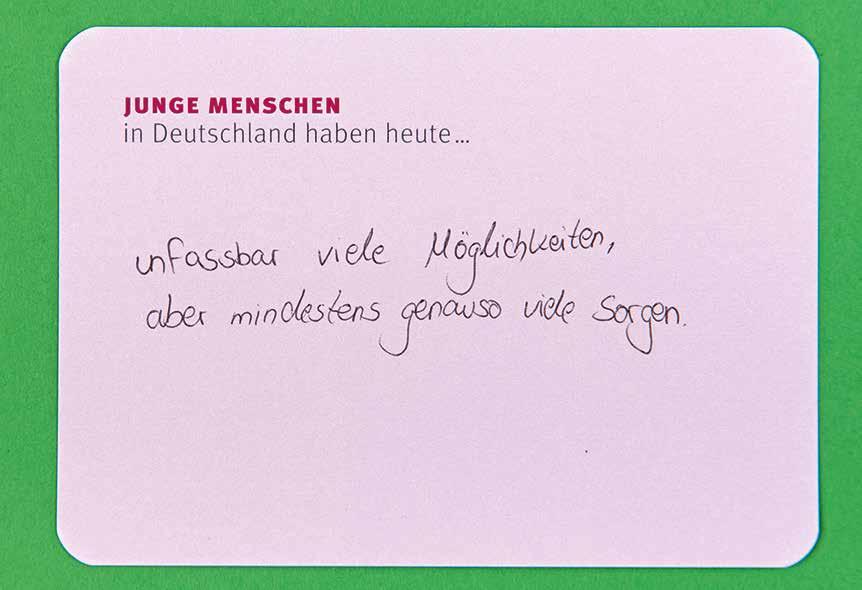 JUNGE MENSCHEN
in Deutschland haben heute...
unfassbar viele Möglichkeiten,
aber mindestens genauso viele Sorgen.